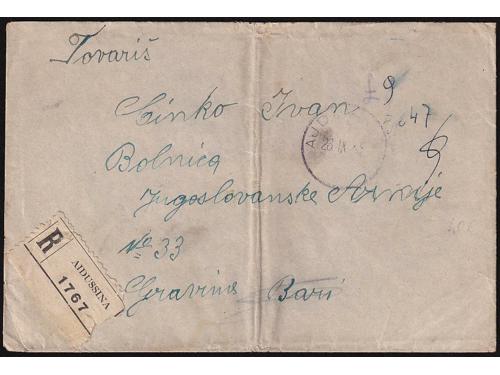 Tovariš
Cinko Ivan
Bolnica
Jugoslovanske Armije
No 33
Gravina Bari
R
AIDUSSINA
1767
AJD